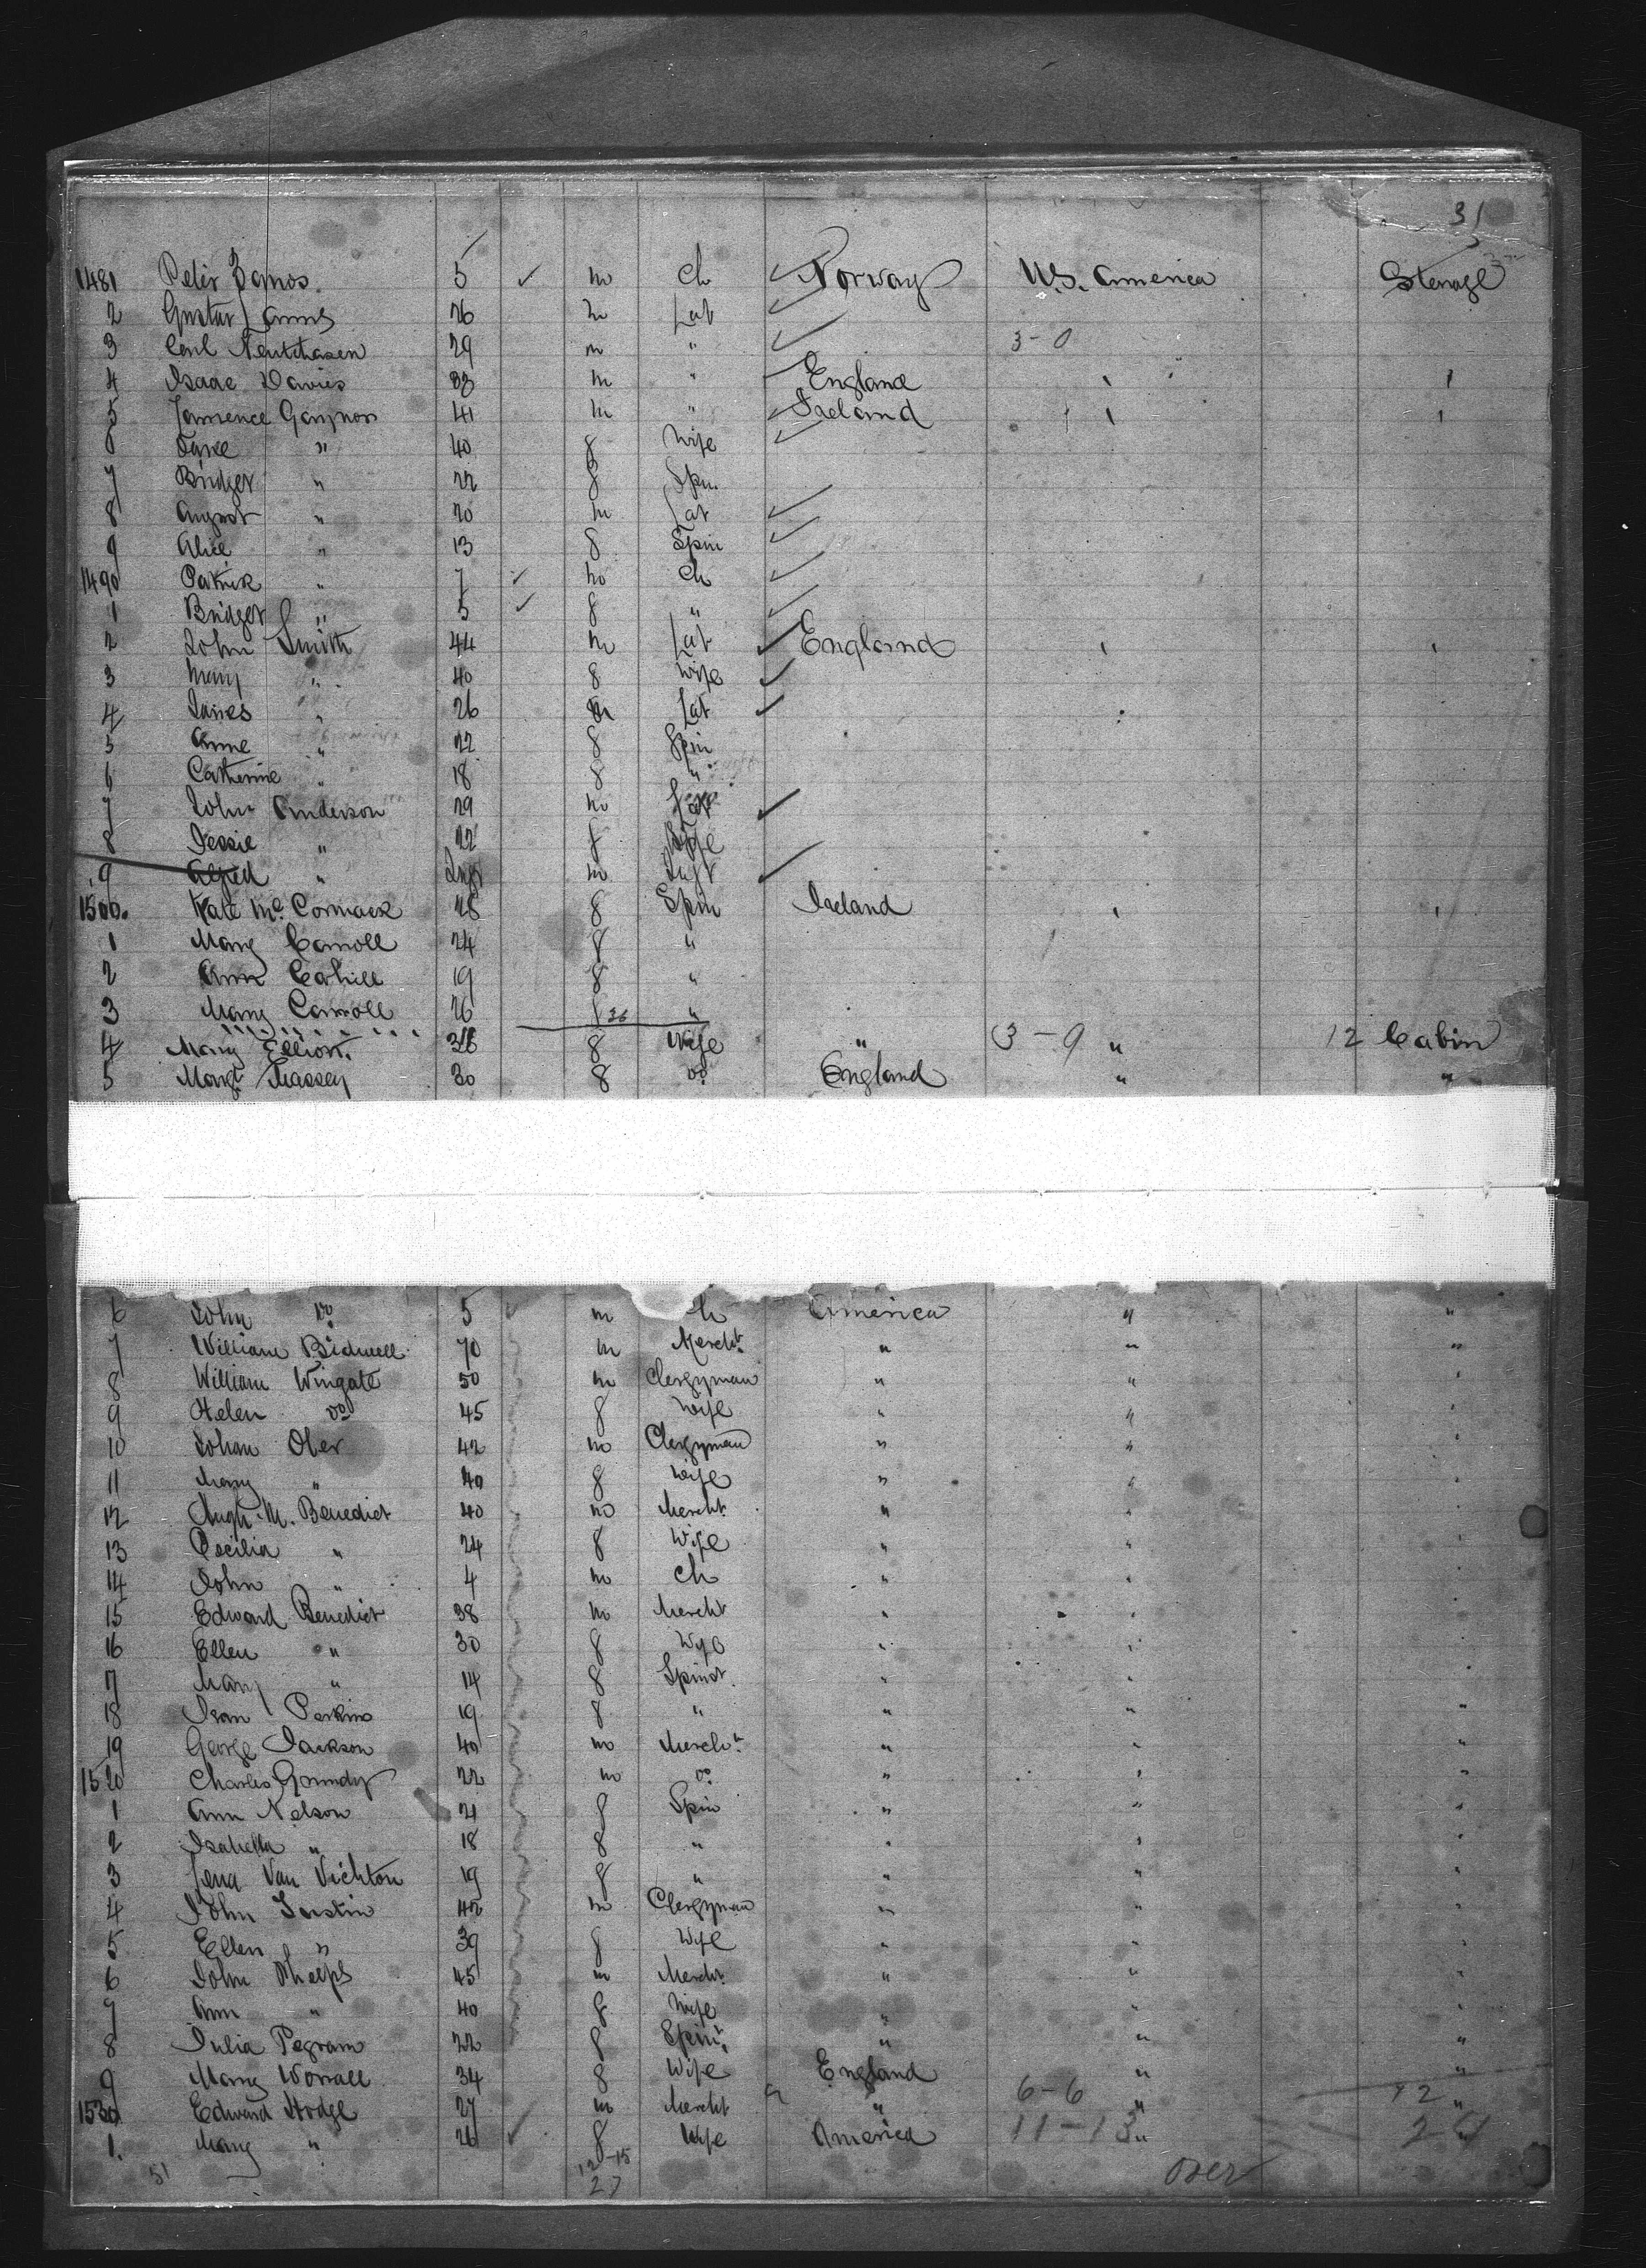 31
1481 Peter 5 ✓ m Ch ✓ Norway U.S. America Sterage
2 Gustav 26 m Lab ✓
3 Carl 29 m " ✓ 3-0
4 Isaac Davies 33 m " England
5 Gaynon 41 m " ✓ Ireland
6 Jane " 40 f Wife ✓
7 Bridget " 22 f Spin
8 August " 20 m Lab ✓
9 Alice " 13 f Spin ✓
1490 Patrick " 7 ✓ m Ch ✓
1 Bridget " 5 ✓ f " ✓
2 John Smith 44 m Lab ✓ England
3 Mary " 40 f Wife ✓
4 James " 26 m Lab ✓
5 Anne " 22 f Spin
6 Catherine " 18 f "
7 John Anderson 29 m Lab ✓
8 Jessie " 22 f Wife
9 Alfred " Inft m Inft ✓
1500 Kate McCormack 28 f Spin Ireland
1 Mary Carroll 24 f "
2 Ann Cahill 19 f "
3 Mary Carroll 26 f 26 "
4 Mary Elliott 38 f Wife " 3-9 " 12 Cabin
5 Margt Massey 30 f do England " "
6 John do 5 m Ch America " "
7 William Bidwell 70 m Mercht " " "
8 William Wingate 50 m Clergyman " " "
9 Helen do 45 f Wife " " "
10 Johan Ober 42 m Clergyman " " "
11 Mary " 40 f Wife " " "
12 Hugh M. Benedict 40 m Mercht " " "
13 Cecilia " 24 f Wife " " "
14 John " 4 m Ch " " "
15 Edward Benedict 38 m Mercht " " "
16 Ellen " 30 f Wife " " "
17 Mary " 14 f Spinst " " "
18 Perkins 19 f " " " "
19 George Jackson 40 m Mercht " " "
1520 Charles Grundy 22 m do " " "
1 Ann Nelson 21 f Spin " " "
2 Isabella " 18 f " " " "
3 Lena Van Vichton 19 f " " " "
4 John Justin 42 m Clergyman " " "
5 Ellen " 39 f Wife " " "
6 John Phelps 45 m Mercht " " "
7 Ann " 40 f Wife " " "
8 Julia Pegram 22 f Spinr " " "
9 Mary Worrall 34 f Wife England " "
1530 Edward Hodge 27 m Mercht " 6-6 " 12 "
1. Mary " 26 ✓ f Wife America 11-13 " 24
51 12-15 over
27